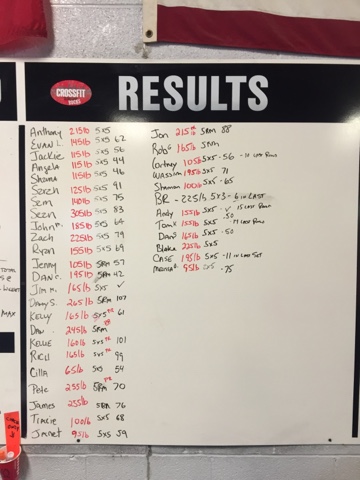 CROSSFIT
RESULTS
Anthony 215lb 5x5
EVAN L. 145lb 5x5 62
Jackie 115lb 5x5 56
Angela 115lb 5x5 44
Shauna 115lb 5x5 46
Seren 125lb 5x5 91
Sem 140lb 5x5 75
Sean 305lb 5x5 83
John M. 185lb 5x5 64
Zach 225lb 5x5 79
Ryan 155lb 5x5 69
Jenny 105lb 5RM 57
DAN C. 195lb 5RM 42
Jim M. 165lb 5x5 ✓
Danny S. 265lb 5RM 107
KELLY 165lb 5x5 PR 61
DAN 245lb 5RM
KELLIE 160lb 5x5 PR 101
RICH 165lb 5x5 PR 99
Cilla 65lb 5x5 54
Pete 255lb 5RM PR 70
James 235lb 5RM 76
Tracie 100lb 5x5 68
Janet 95lb 5x5 59
Jon 215lb 5RM 88
Rob G 165lb 5RM
Cortney 105lb 5x5 - 56 - 11 LAST ROUND
WASSIM 195lb 5x5 71
Shannon 100lb 5x5 - 65
BR - 225lb 5x3 - 6 in LAST
Andy 155lb 5x5 - ✓
Tom 155lb 5x5 - 50
Dan 165lb 5x5 - 50
Blake 225lb 5x5
CASE 195lb 5x5 - 11 in Last Set
95lb 5x5 - 75
MAX